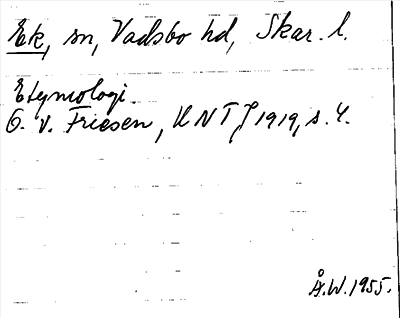 Ek, sn, Vadsbo hd, Skar. l.
Etymologi.
O. v. Friesen, UNTJ 1919, s. 4.
Å.W. 1955.